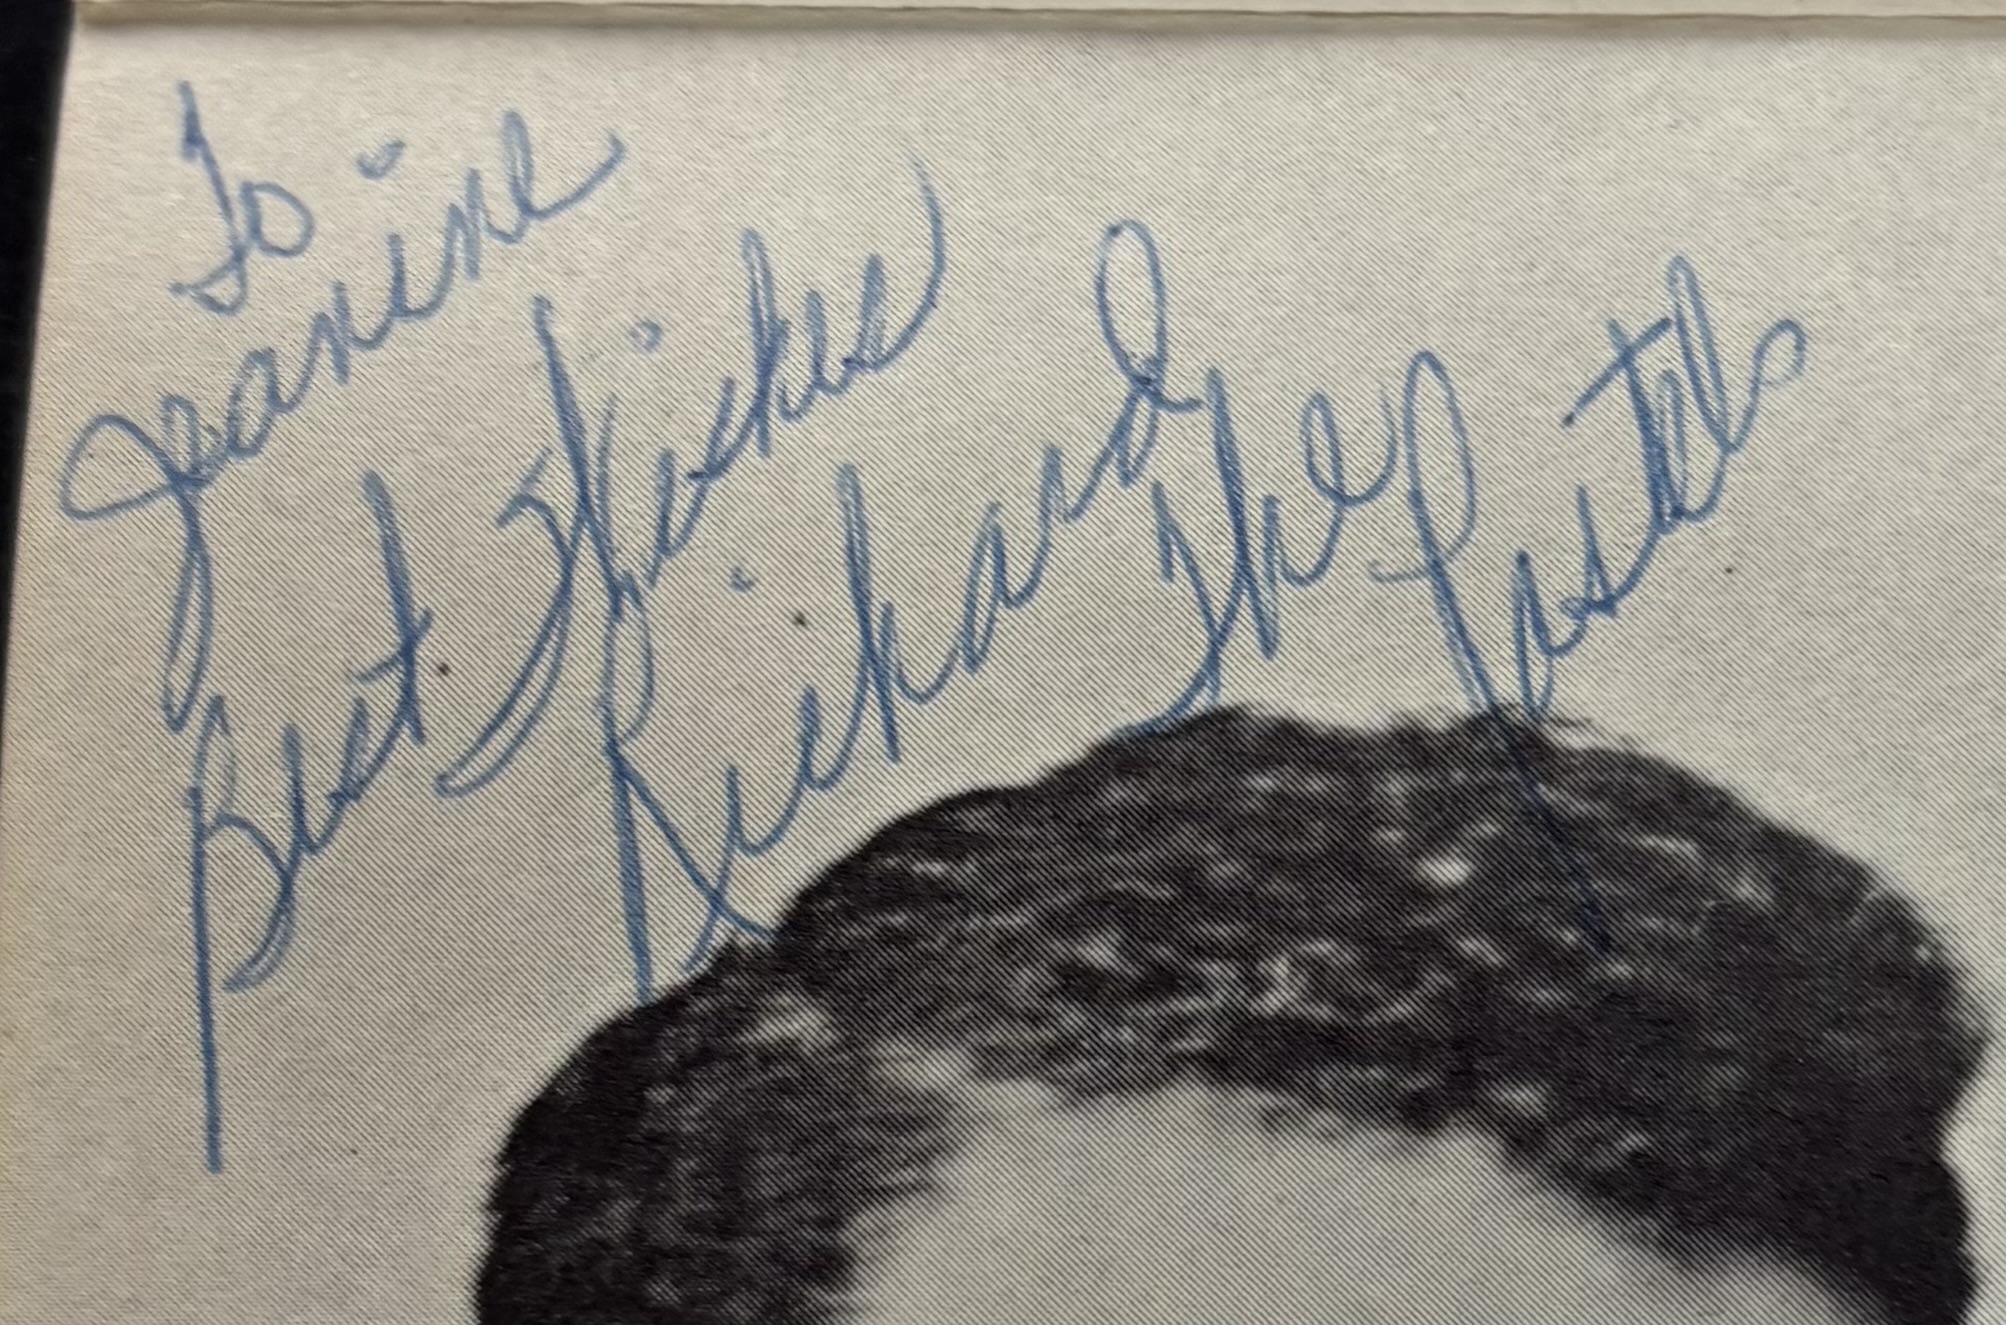 To
Jeanine
Best Wishes
Richard The Pastels